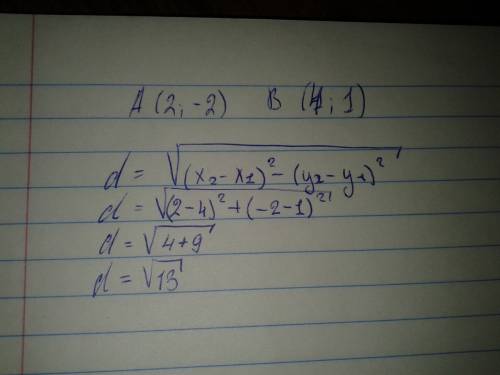 A (2; -2) B (4; 1)
d = √(x₂ - x₁)² - (y₂ - y₁)²
d = √(2 - 4)² + (-2 - 1)²
d = √4+9
d = √13